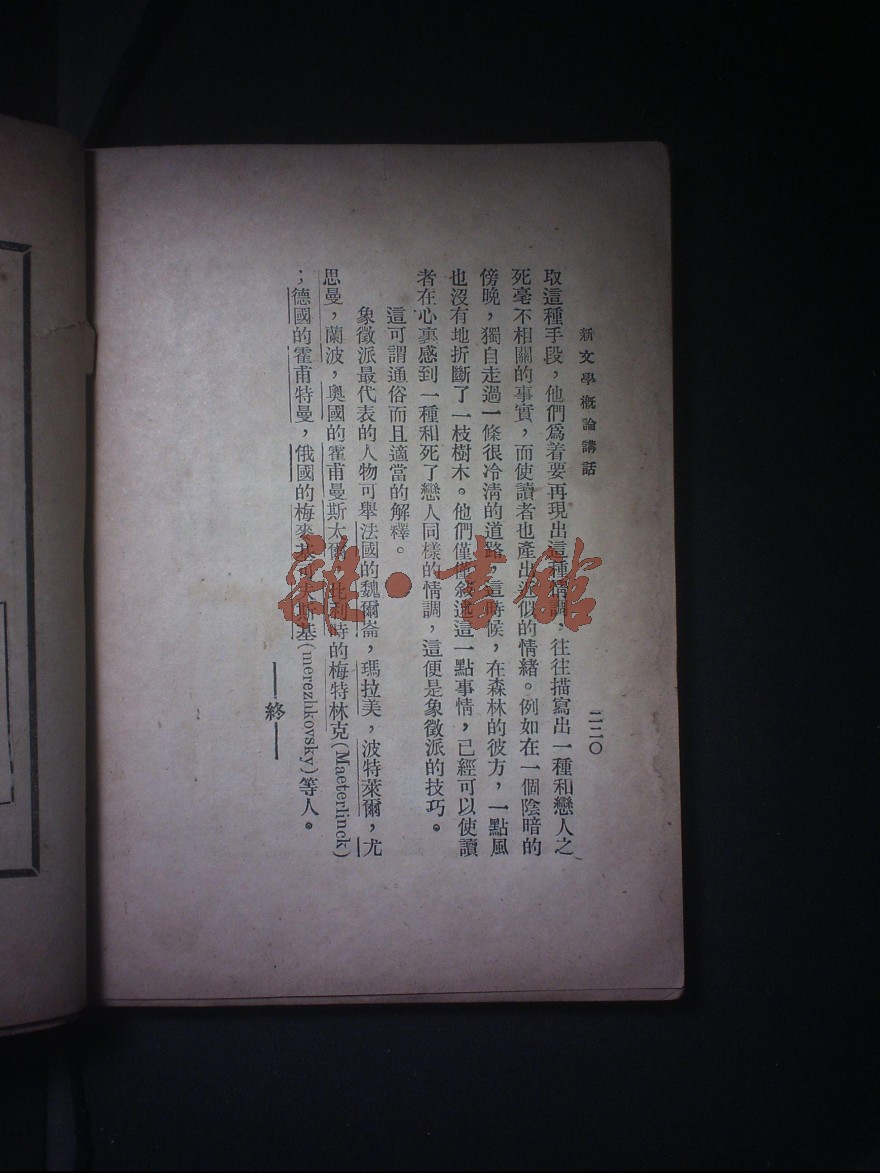 新文學概論講話
二二〇
取這種手段，他們爲着要再現出這種情調，往往描寫出一種和戀人之
死毫不相關的事實，而使讀者也產出近似的情緒。例如在一個陰暗的
傍晚，獨自走過一條很冷清的道路，這時候，在森林的彼方，一點風
也沒有地折斷了一枝樹木。他們僅僅敘述這一點事情，已經可以使讀
者在心裏感到一種和死了戀人同樣的情調，這便是象徵派的技巧。
這可謂通俗而且適當的解釋。
象徵派最代表的人物可舉法國的魏爾崙，瑪拉美，波特萊爾，尤
思曼，蘭波，奧國的霍甫曼斯太爾，比利時的梅特林克(Maeterlinck)
；德國的霍甫特曼，俄國的梅來基可夫斯基(merezhkovsky)等人。
——終——
雜·書館